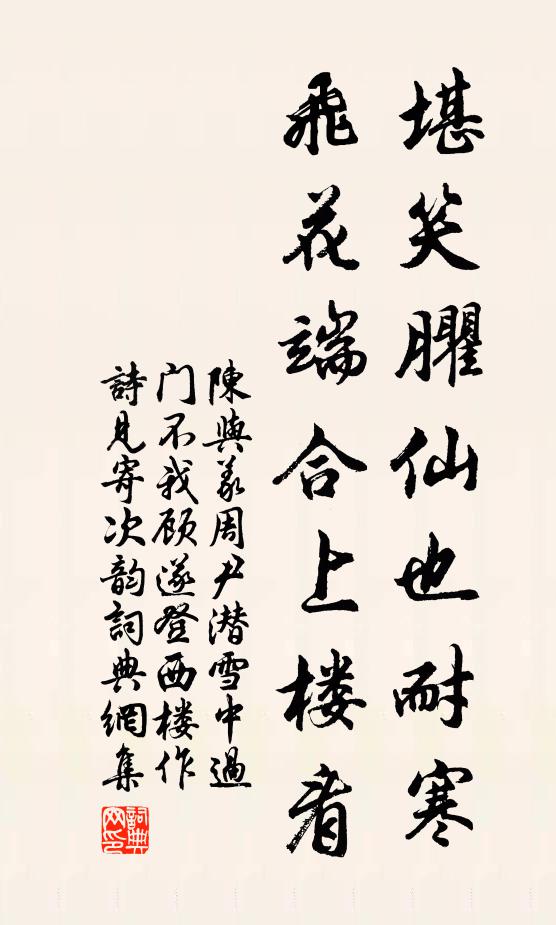 堪笑臞仙也耐寒
飛花端合上楼看
陳與義周尹潜雪中過
门不我顾遂登西楼作
詩見寄次韵詞典網集
詞典网印